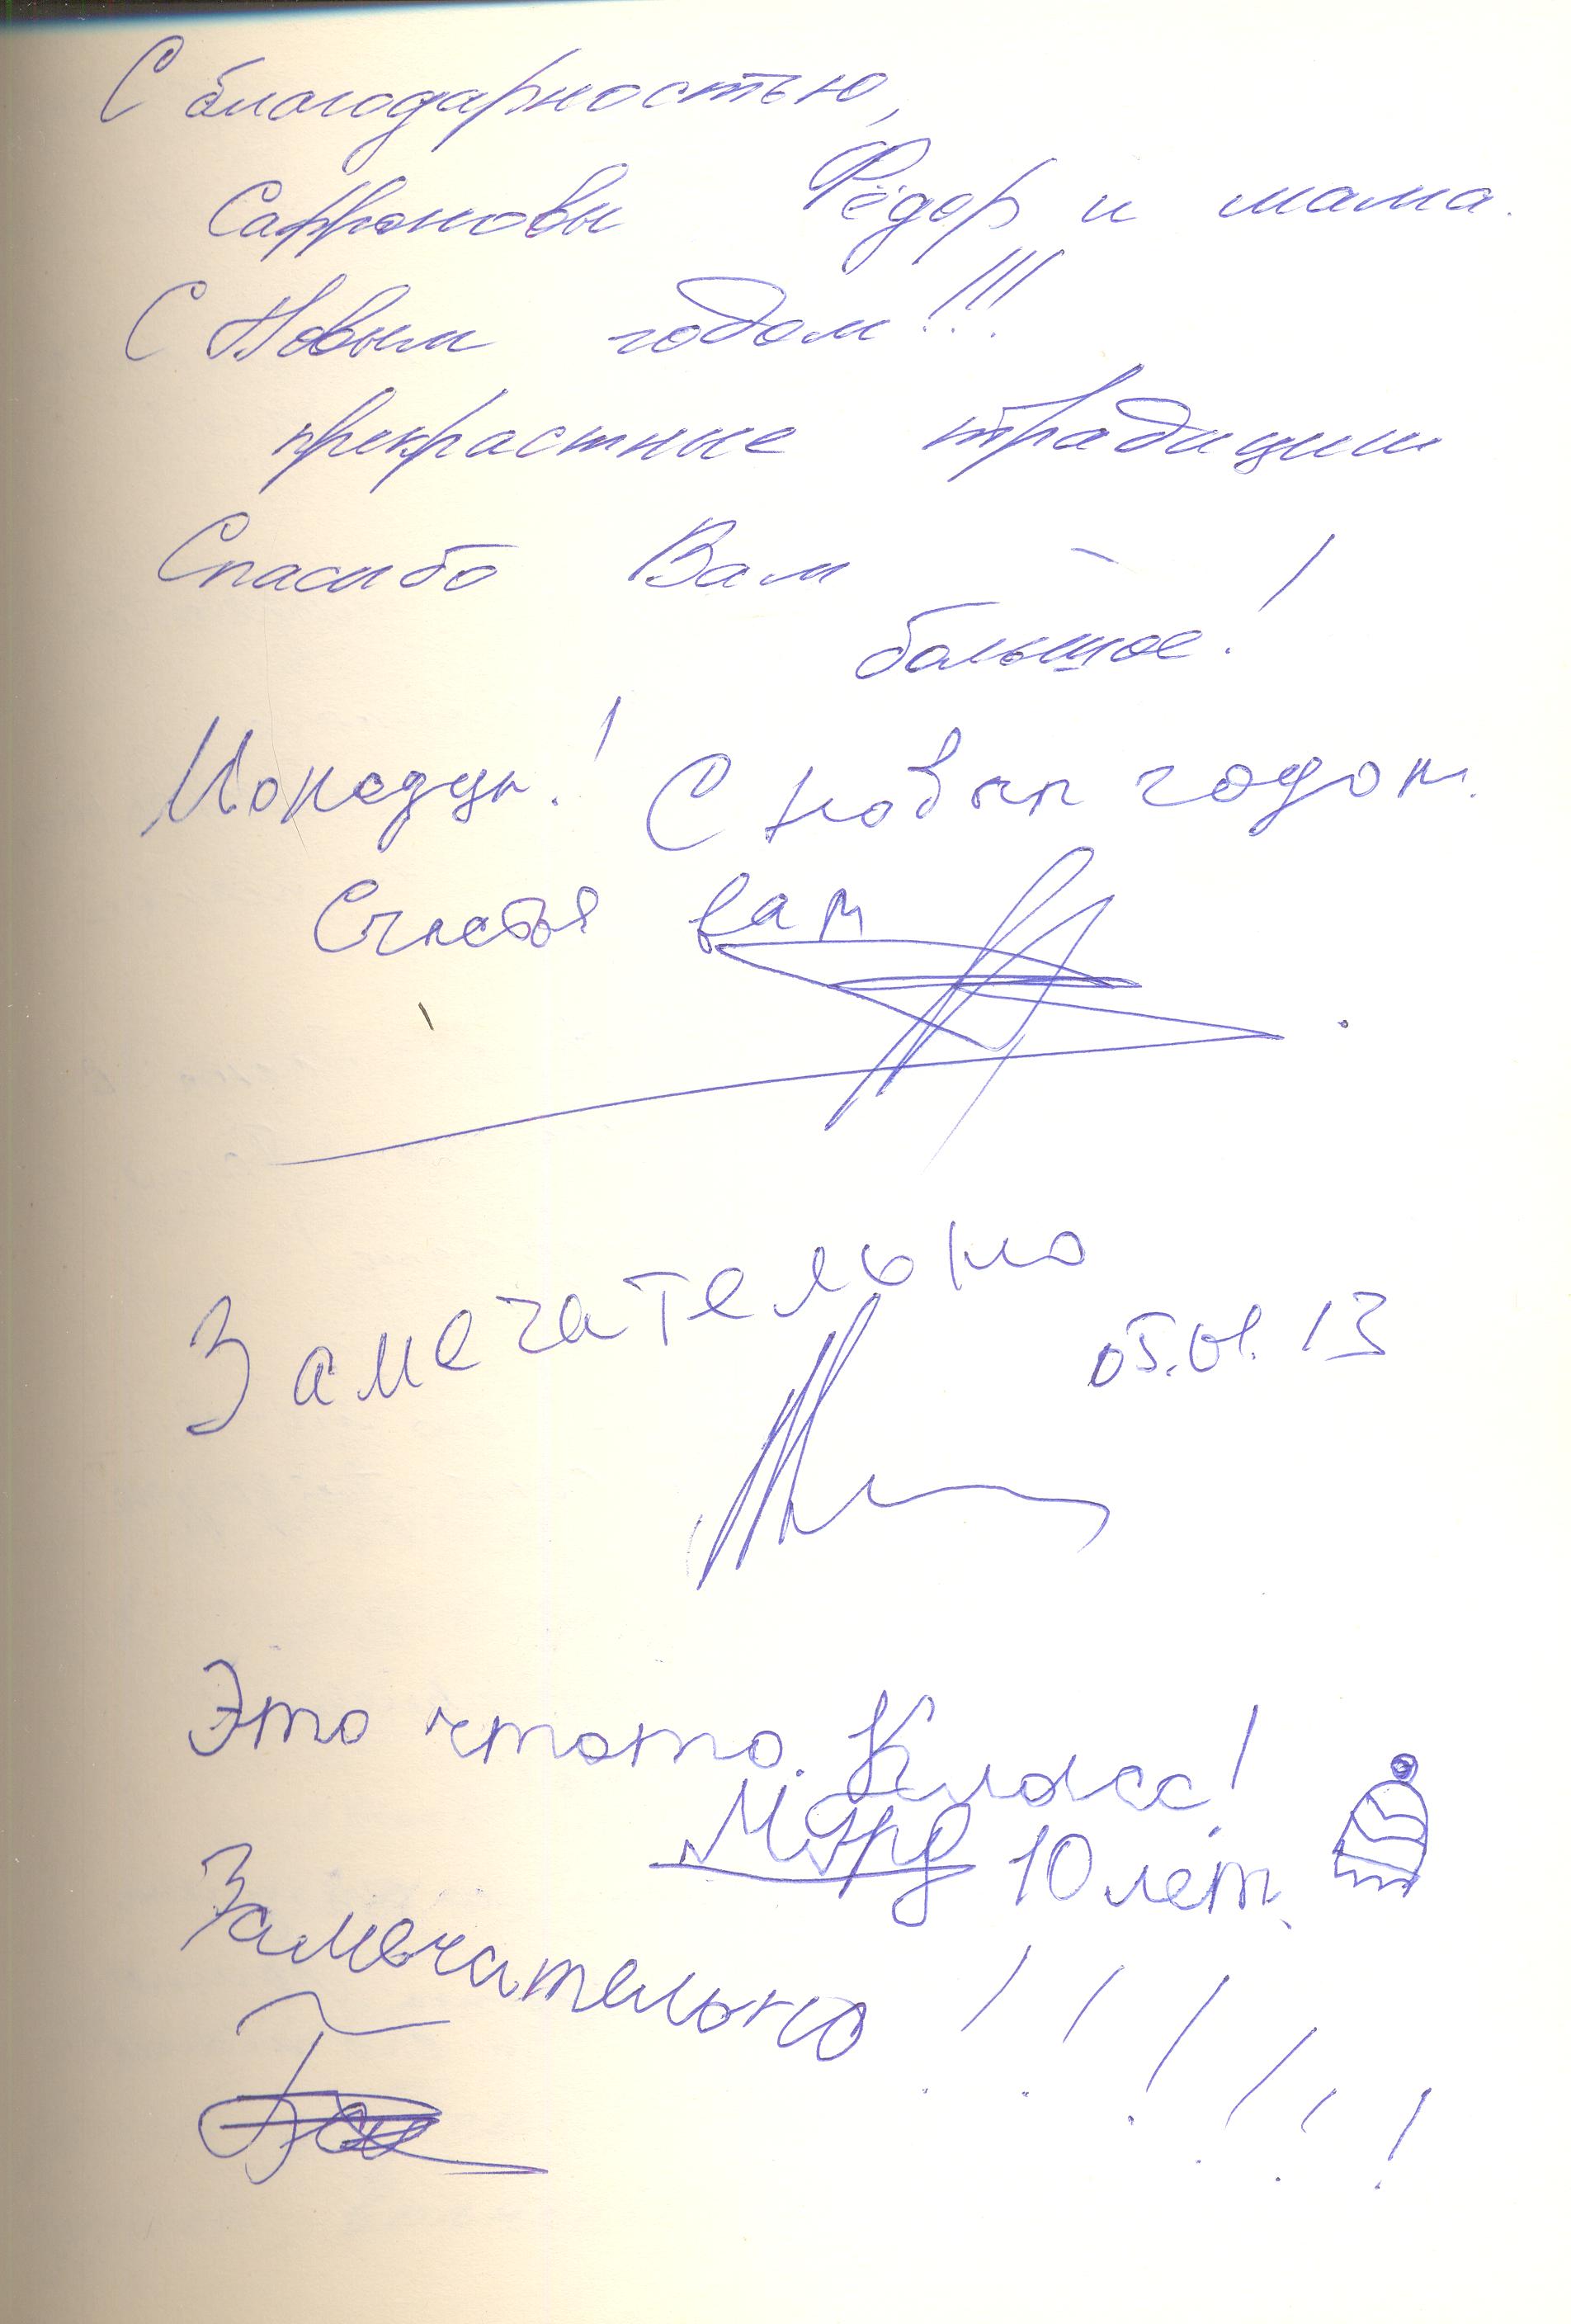 С благодарностью,
Сафроновы Фёдор и мама.
С Новым годом!!!
прекрастные традиции
Спасибо Вам
большое!
Молодцы! С новым годом.
Счастья вам
Замечательно
05.01.13
Это чтото. Класс!
10 лет.
Замечательно!!!!!!